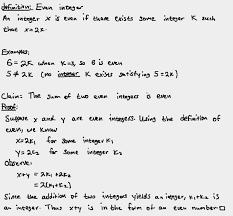 definition: Even integer
An integer x is even if there exists some integer K such
that x=2K
Examples:
6=2K when K=3, so 6 is even
5≠2K (no integer K exists satisfying 5=2K)
Claim: The sum of two even integers is even
Proof:
Suppose x and y are even integers. Using the definition of
even, we know
x=2K₁ for some integer K₁
y=2K₂ for some integer K₂
Observe:
x+y = 2K₁+2K₂
=2(K₁+K₂)
Since the addition of two integers yields an integer, K₁+K₂ is
an integer. Thus x+y is in the form of an even number □